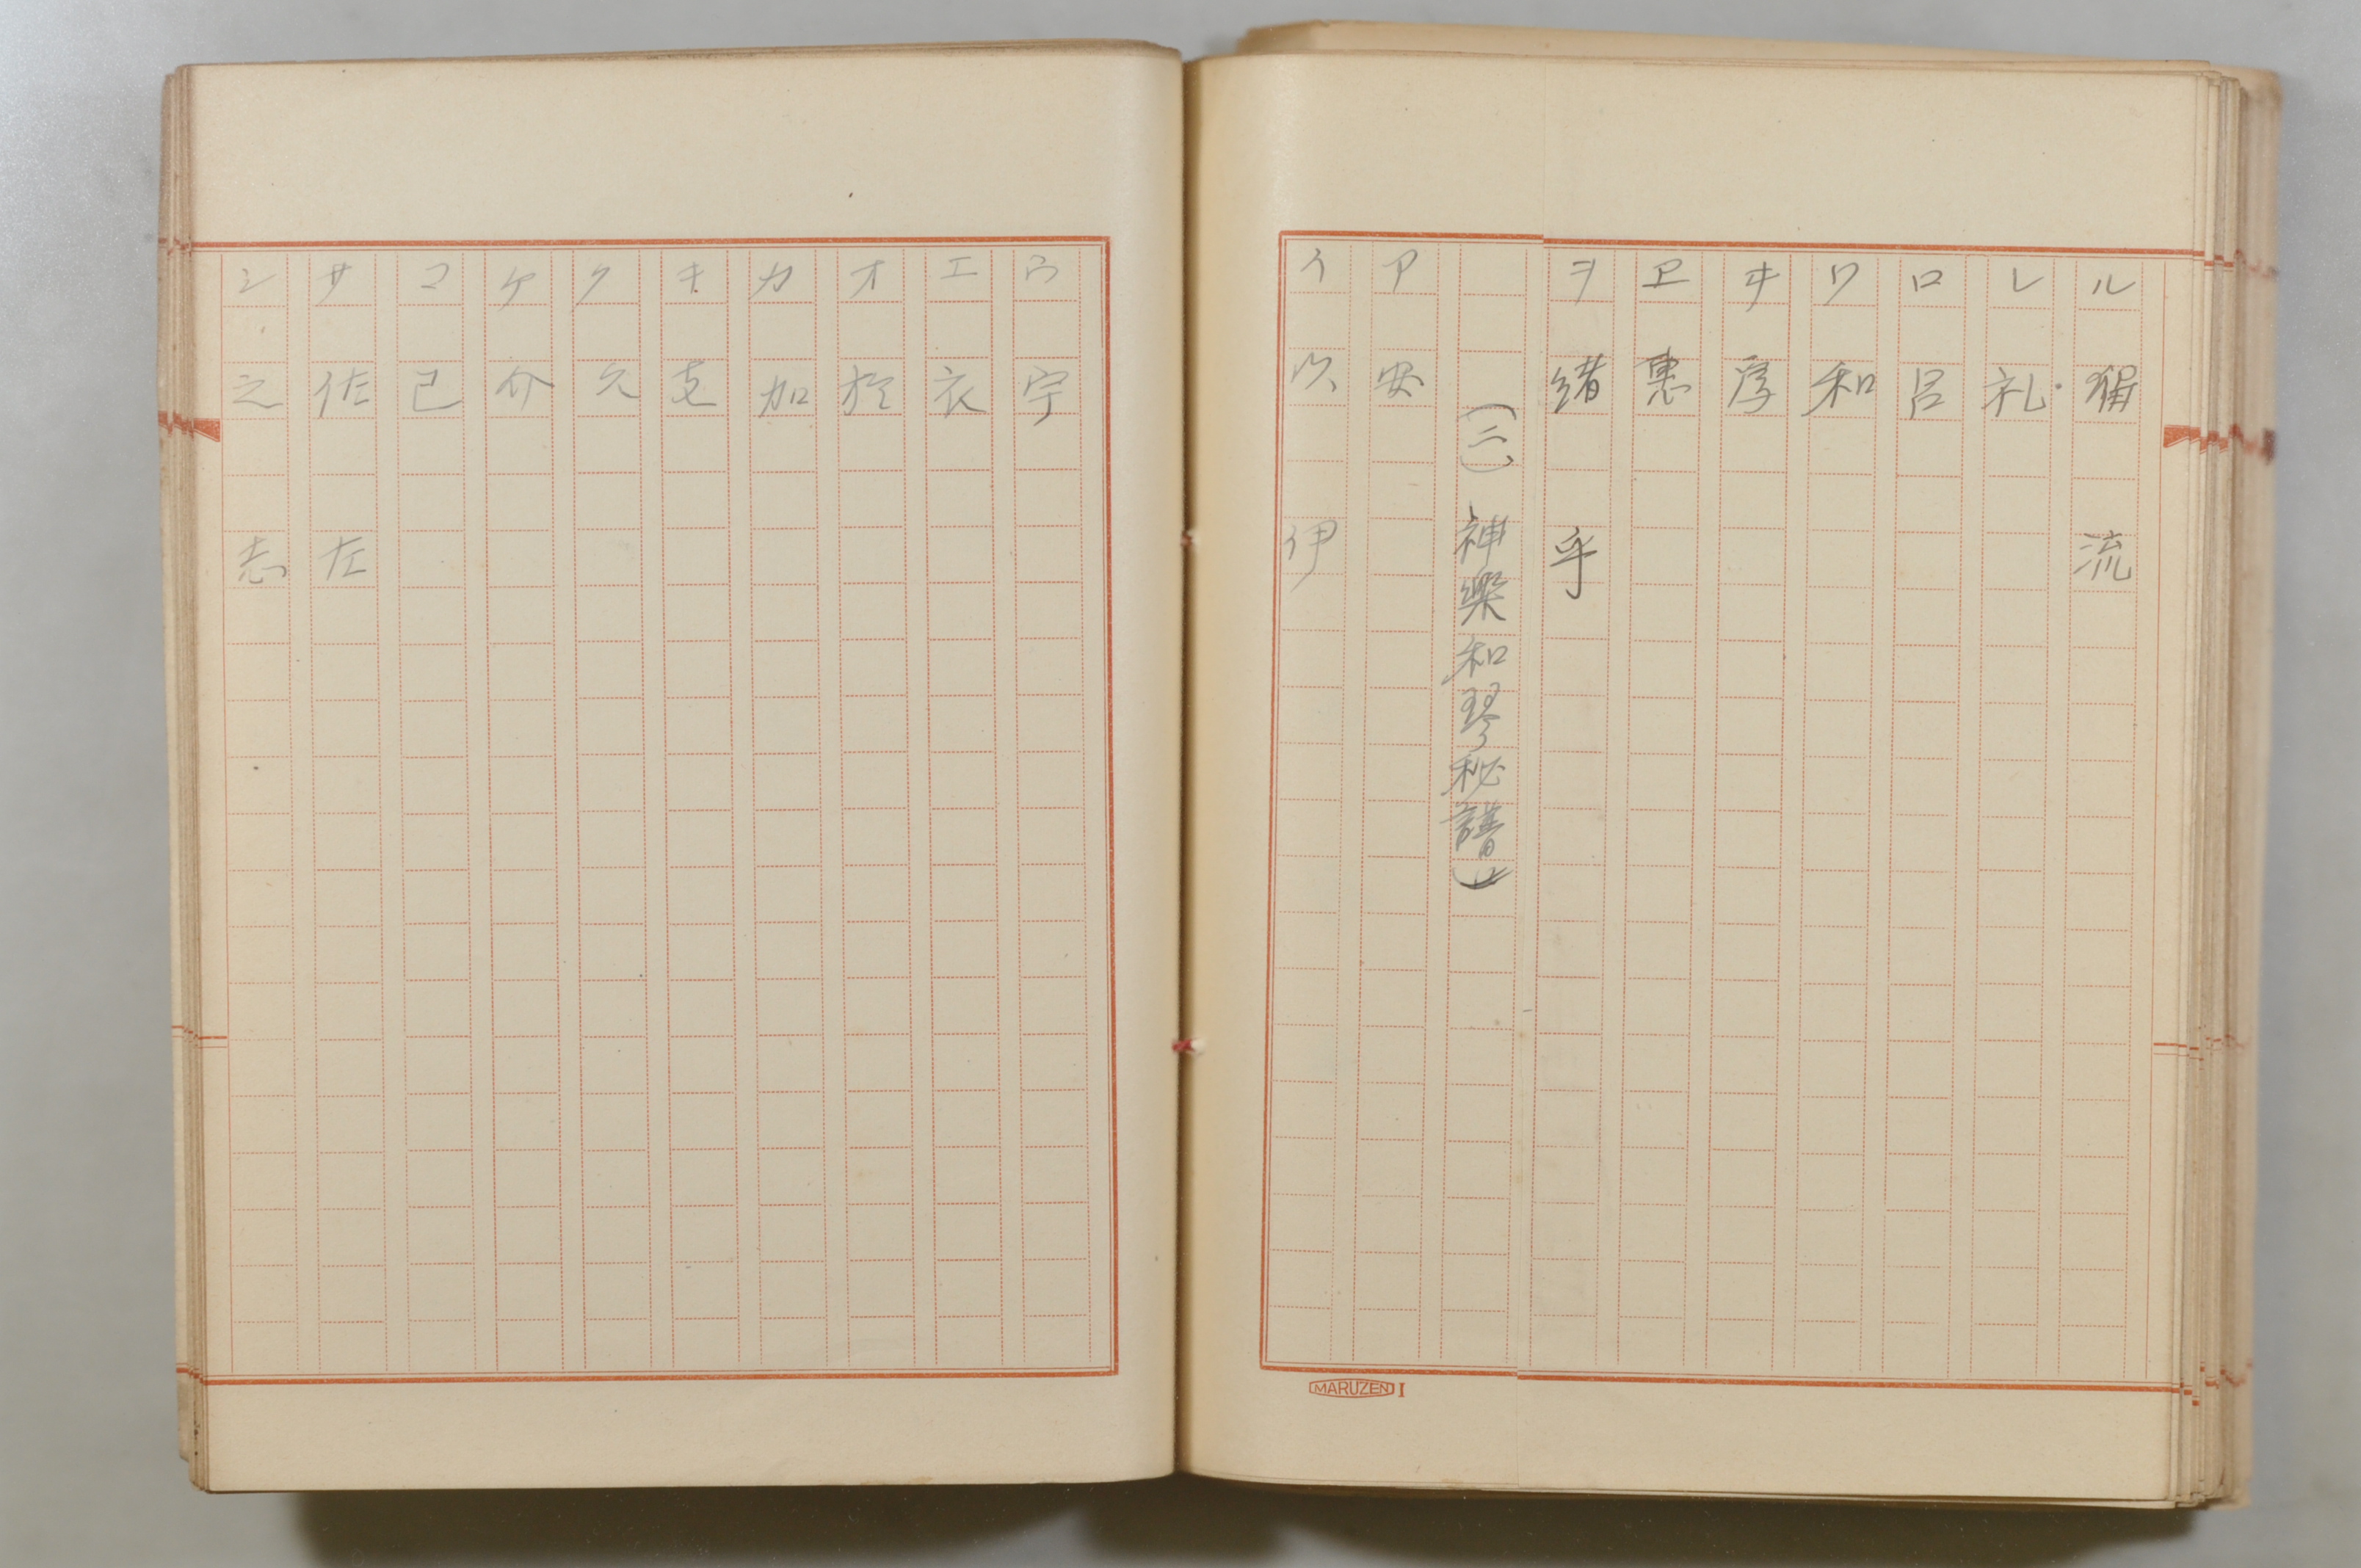 ル 留 流
レ 礼
ロ 呂
ワ 和
ヰ
ヱ 恵
ヲ 緒 乎
(二) 神樂和琴秘譜
ア 安
イ 以 伊
ウ 宇
エ 衣
オ 於
カ 加
キ 支
ク 久
ケ 介
コ 己
サ 佐 左
シ 之 志
MARUZEN I